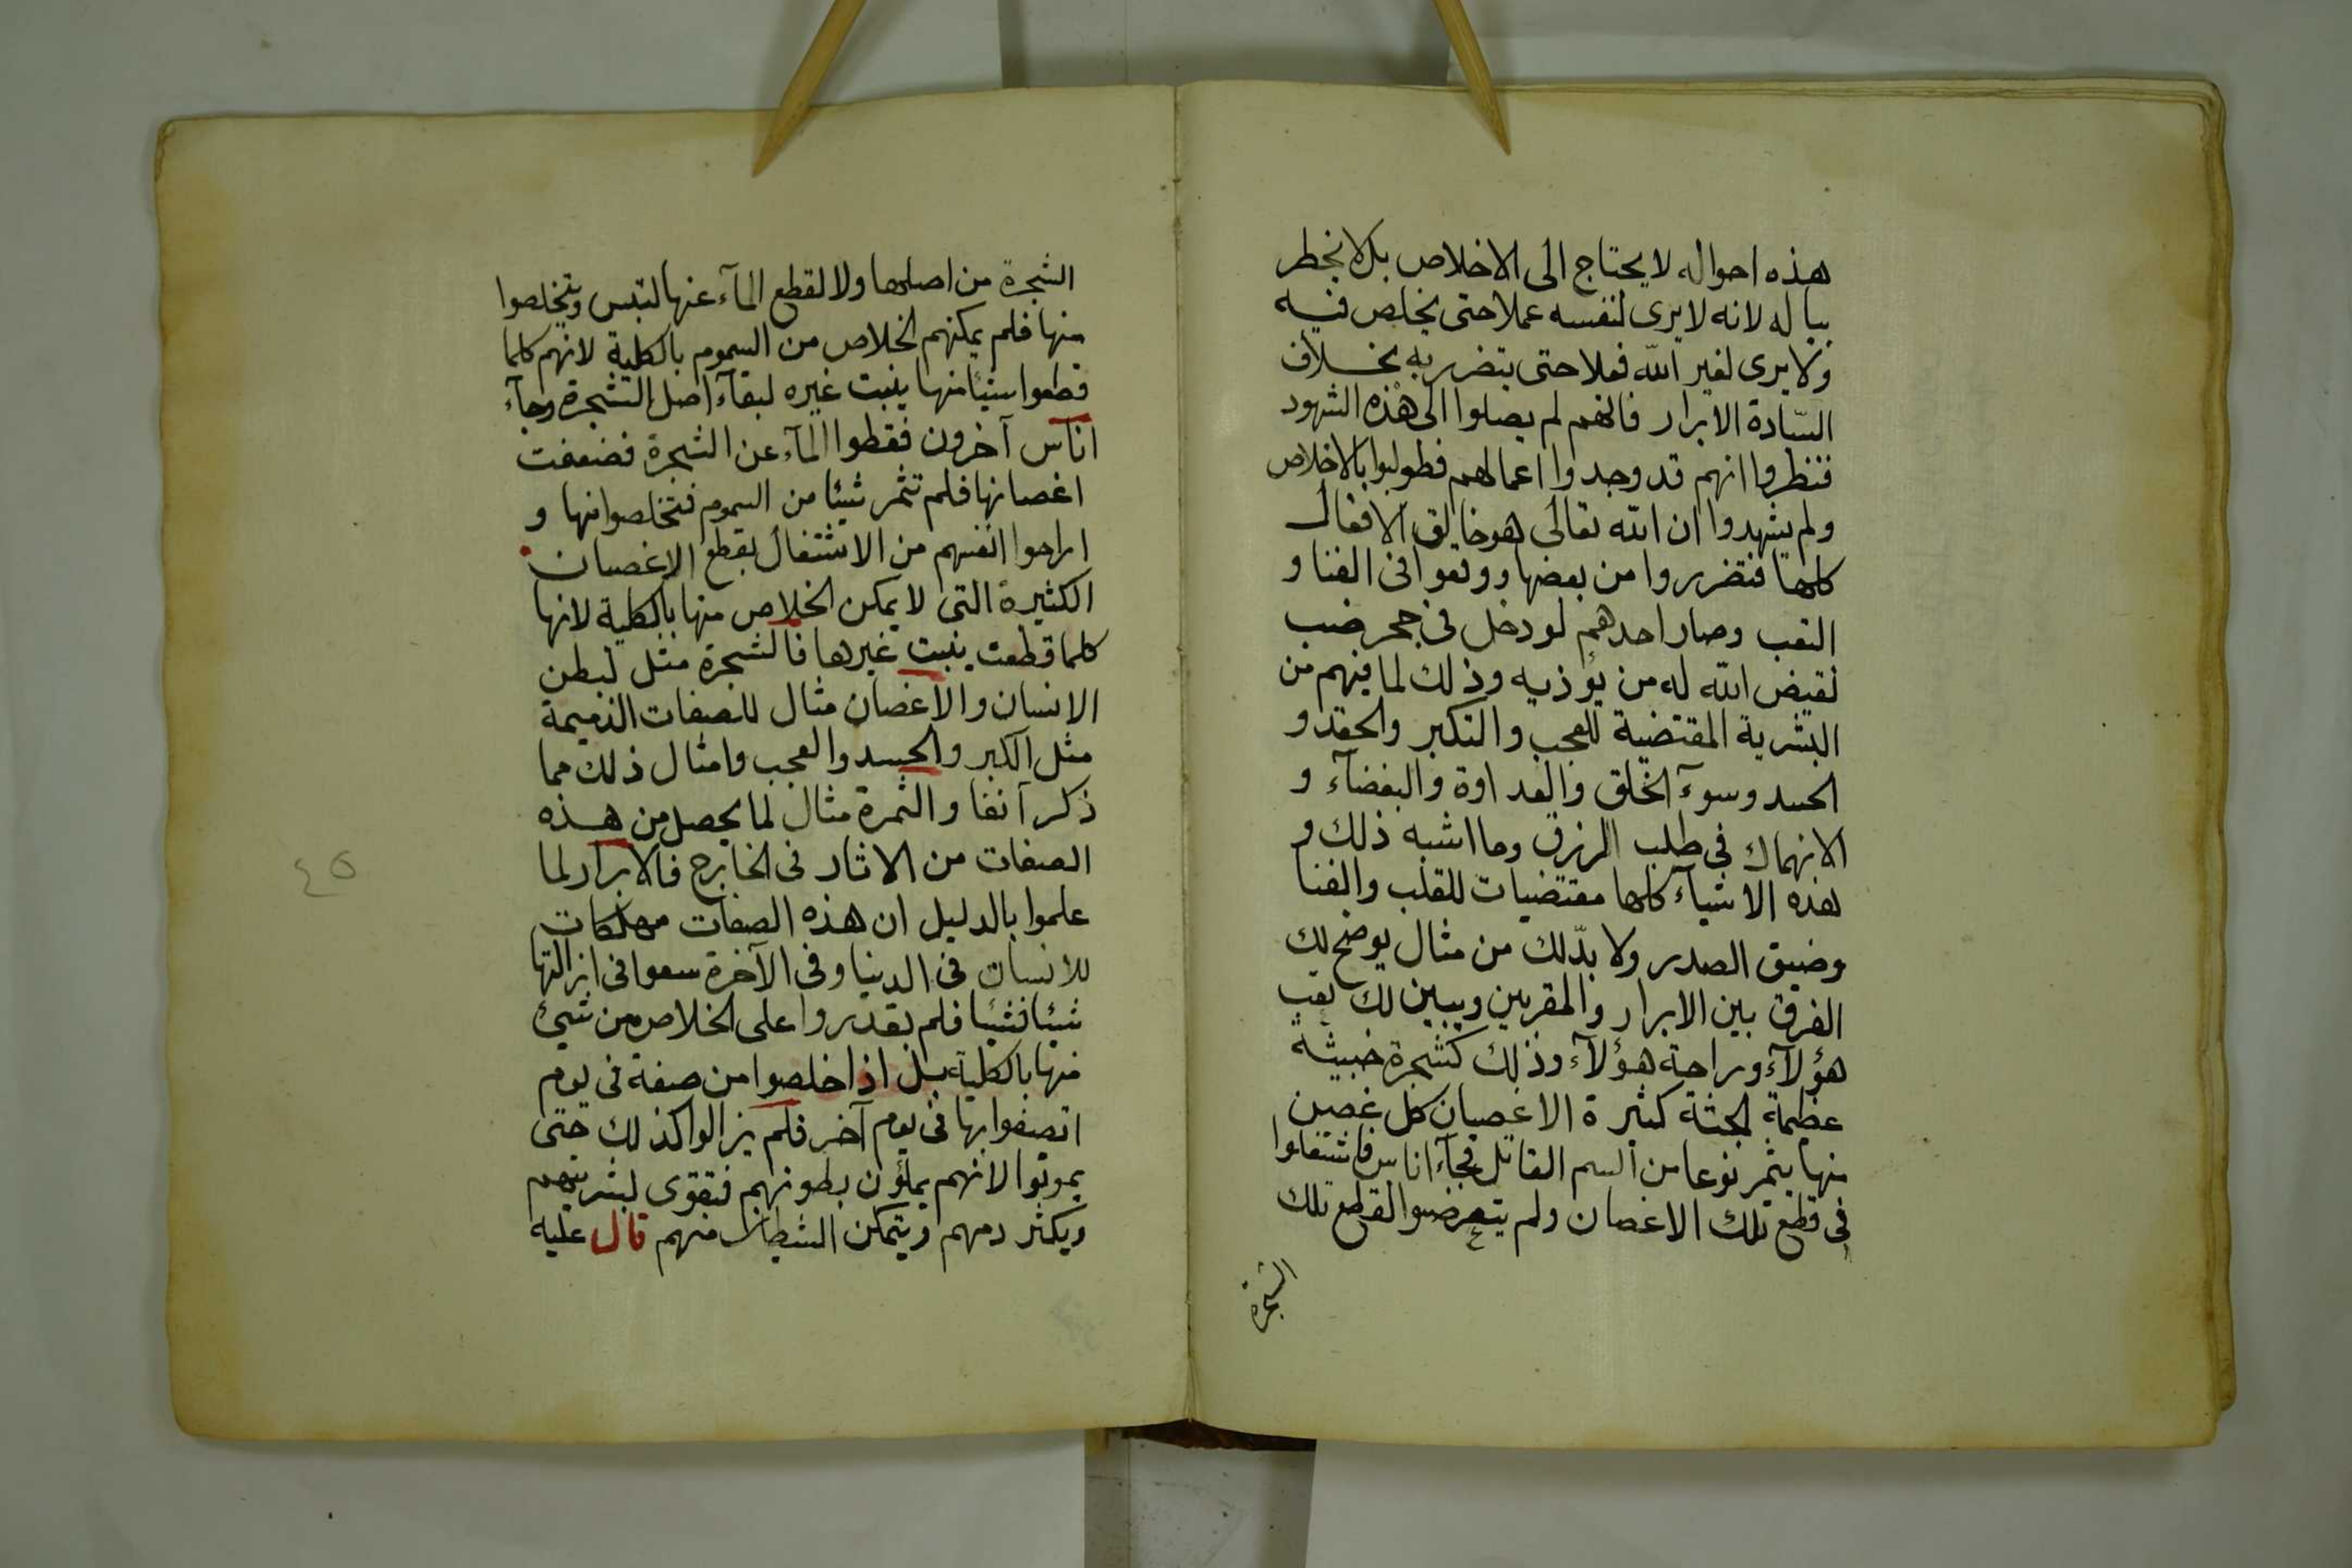 هذه احواله لا يحتاج الى الاخلاص بل لا يخطر
بباله لانه لا يرى لنفسه عملا حتى يخلص فيه
ولا يرى لغير الله فعلا حتى يتضرر به بخلاف
السّادة الابرار فانهم لم يصلوا الى هذه الشهود
فنظروا انهم قد وجدوا اعمالهم فطولبوا بالاخلاص
ولم يشهدوا ان الله تعالى هو خالق الافعال
كلها فتضرروا من بعضها ووقعوا فى العنا و
التعب وصار احدهم لو دخل فى جحر ضب
لقيض الله له من يؤذيه وذلك لما فيهم من
البشرية المقتضية للعجب والتكبر والحقد و
الحسد وسوء الخلق والعداوة والبغضآء و
الانهماك فى طلب الرزق وما اشبه ذلك و
هذه الاشيآء كلها مقتضيات للقلب والعنا
وضيق الصدر ولا بدّ لك من مثال يوضح لك
الفرق بين الابرار والمقربين ويبين لك تعب
هؤلآء وراحة هؤلآء وذلك كشجرة خبيثة
عظيمة الجثة كثيرة الاغصان كل غصن
منها يثمر نوعا من السم القاتل فجآء اناس فاشتغلوا
فى قطع تلك الاغصان ولم يتعرضوا لقطع تلك
الشجرة
الشجرة من اصلها ولا لقطع المآء عنها لتيبس ويتخلصوا
منها فلم يمكنهم الخلاص من السموم بالكلية لانهم كلما
قطعوا شيئا منها ينبت غيره لبقآء اصل الشجرة وجآء
اناس آخرون فقطوا المآء عن الشجرة فضعفت
اغصانها فلم تثمر شيئا من السموم فتخلصوا منها و
اراحوا انفسهم من الاشتغال بقطع الاغصان
الكثيرة التى لا يمكن الخلاص منها بالكلية لانها
كلما قطعت ينبت غيرها فالشجرة مثل لبطن
الانسان والاغصان مثال للصفات الذميمة
مثل الكبر والحسد والعجب وامثال ذلك مما
ذكر آنفا والثمرة مثال لما يحصل من هذه
الصفات من الاثار فى الخارج فالابرار لما
علموا بالدليل ان هذه الصفات مهلكات
للانسان فى الدنيا وفى الآخرة سعوا فى ازالتها
شيئا فشيئا فلم يقدروا على الخلاص من شئ
منها بالكلية بل اذا خلصوا من صفة فى يوم
اتصفوا بها فى يوم آخر فلم يزالوا كذلك حتى
يموتوا لانهم يملؤن بطونهم فتقوى بشريتهم
ويكثر دمهم ويتمكن الشيطان منهم قال عليه
٤٥